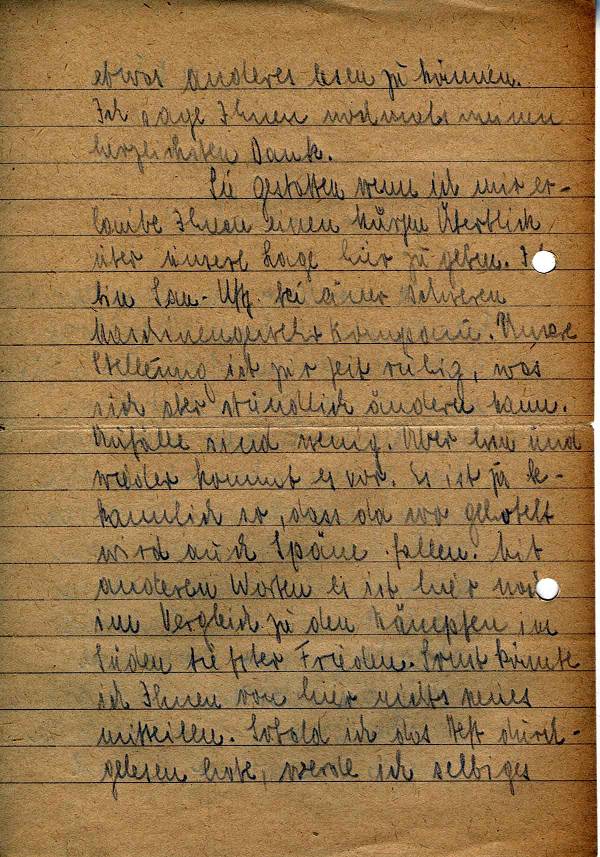 etwas anderes lesen zu können.
Ich sage Ihnen nochmals meinen
herzlichsten Dank.
Sie gestatten wenn ich mir er-
laube Ihnen einen kurzen Überblick
über unsere Lage hier zu geben. I
bin San-Uffz. bei einer schweren
Maschinengewehr Kompanie. Unsere
Stellung ist zur Zeit ruhig, was
sich aber stündlich ändern kann.
Ausfälle sind wenig. Aber hin und
wieder kommt es vor. Es ist ja be-
kanntlich so, dass da wo gehobelt
wird auch Späne fallen. Mit
anderen Worten es ist hier noch
im Vergleich zu den Kämpfen im
Süden tiefster Frieden. Sonst könnte
ich Ihnen von hier nichts neues
mitteilen. Sobald ich das Heft durch-
gelesen habe, werde ich selbiges